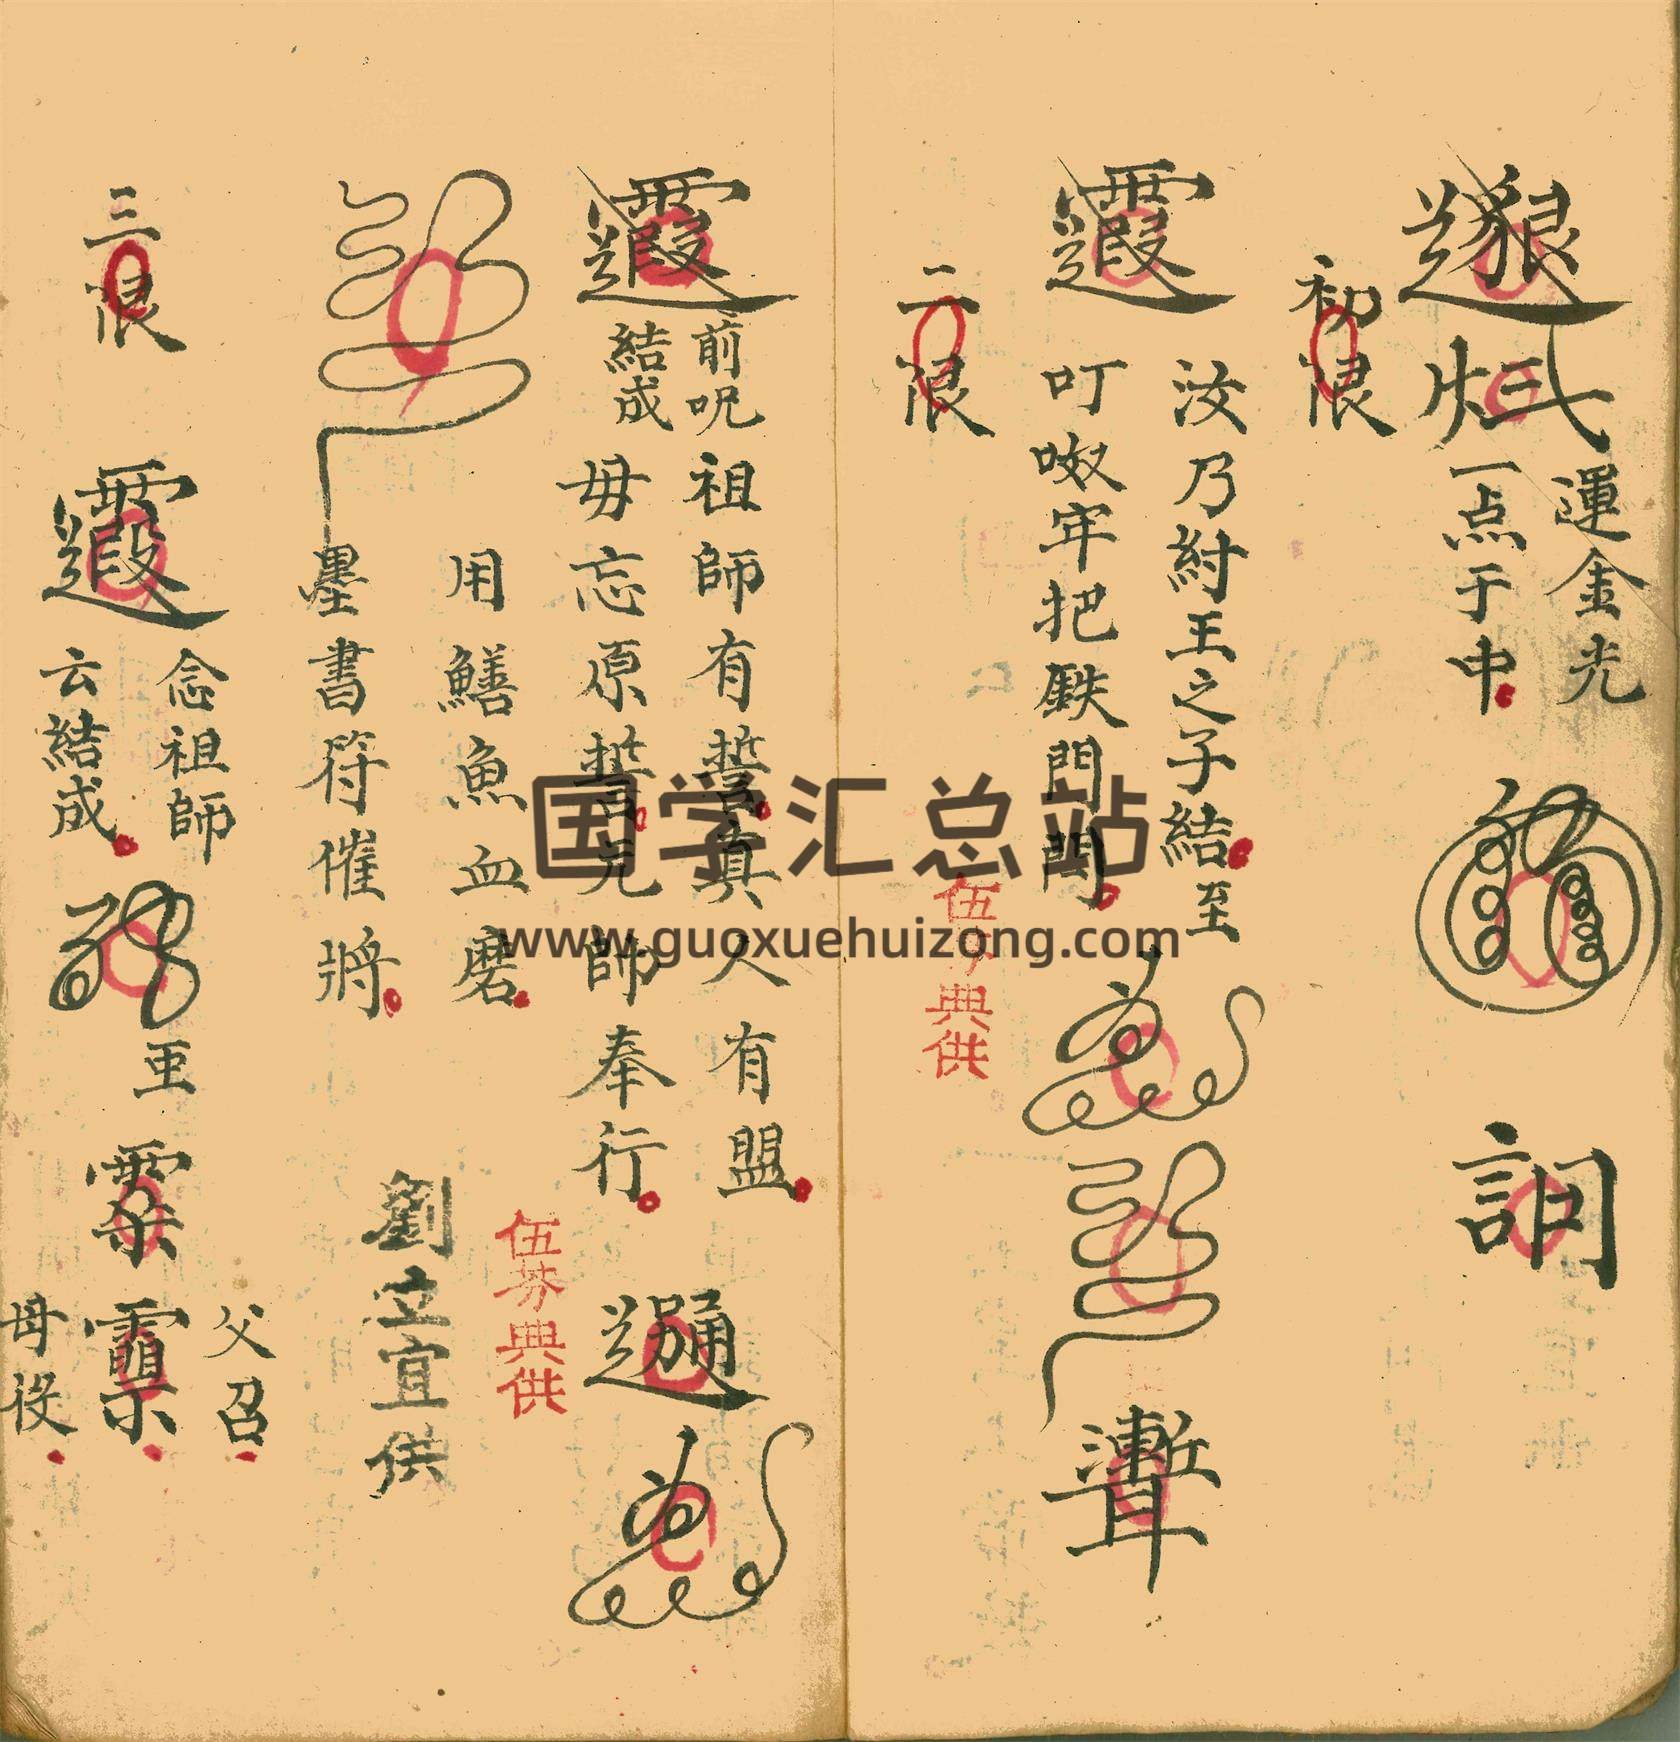 運金光
一点于中
初限
詷
汝乃紂王之子結至
叮呶牢把鉄門閗
二限
伍芬典供
前呪
結成
祖師有誓真人有盟
毋忘原誓元帥奉行
伍芬典供
用鱔魚血磨
墨書符催將
劉立宜供
三限
念祖師
云結成
亜
父召
母役
国学汇总站
www.guoxuehuizong.com